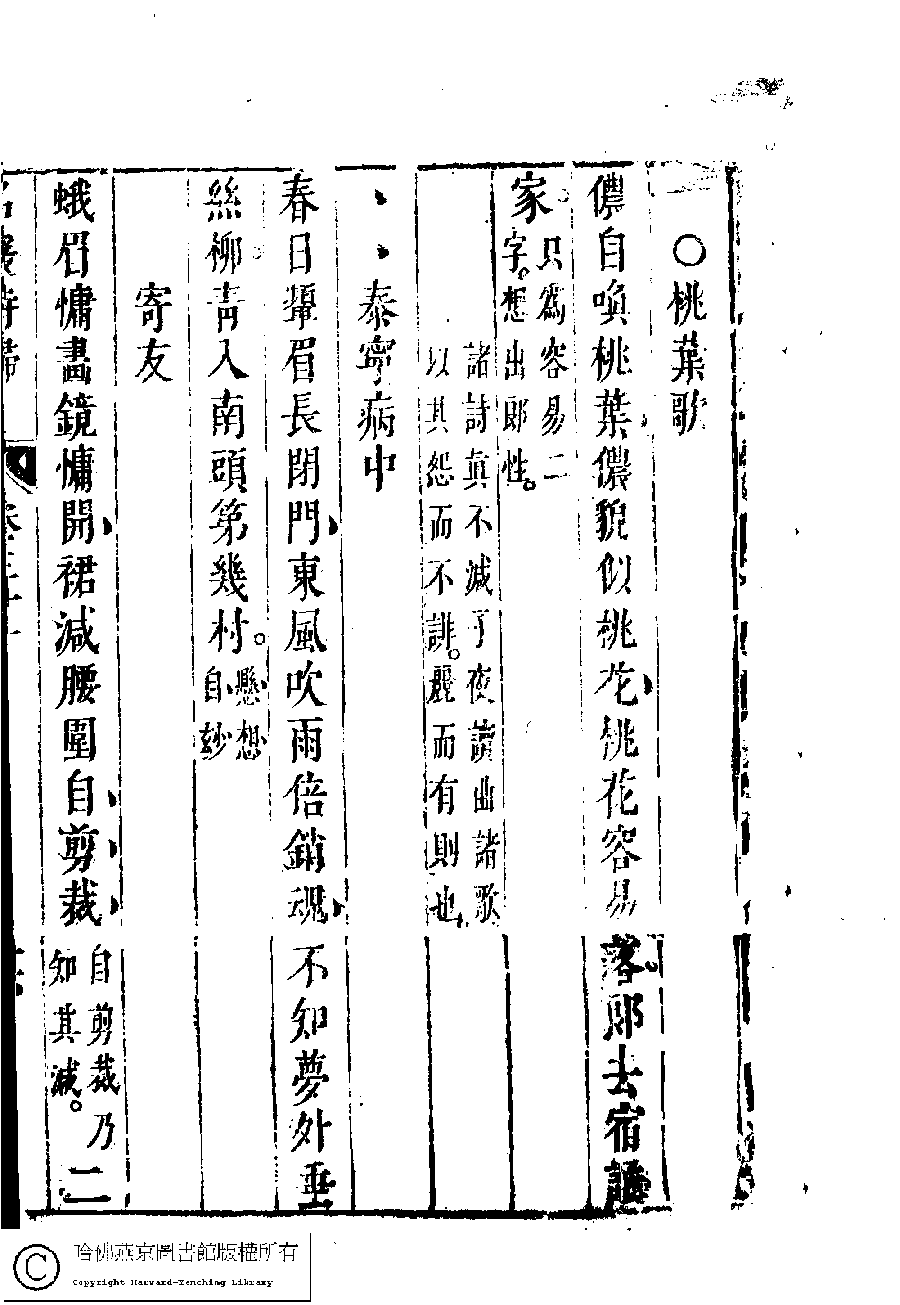 ○桃葉歌
儂自喚桃葉儂貌似桃花桃花容易落郎去宿誰
家只爲容易二
字想出郎性。
諸詩真不減子夜讀曲諸歌
以其怨而不誹。麗而有則也
泰寧病中
春日顰眉長閉門東風吹雨倍銷魂不知夢外垂
絲柳青入南頭第幾村。懸想
自妙
寄友
蛾眉慵畫鏡慵開裙減腰圍自剪裁自剪裁乃
知其減。二
名媛詩歸
卷三十一
哈佛燕京圖書館版權所有
Copyright Harvard-Yenching Library